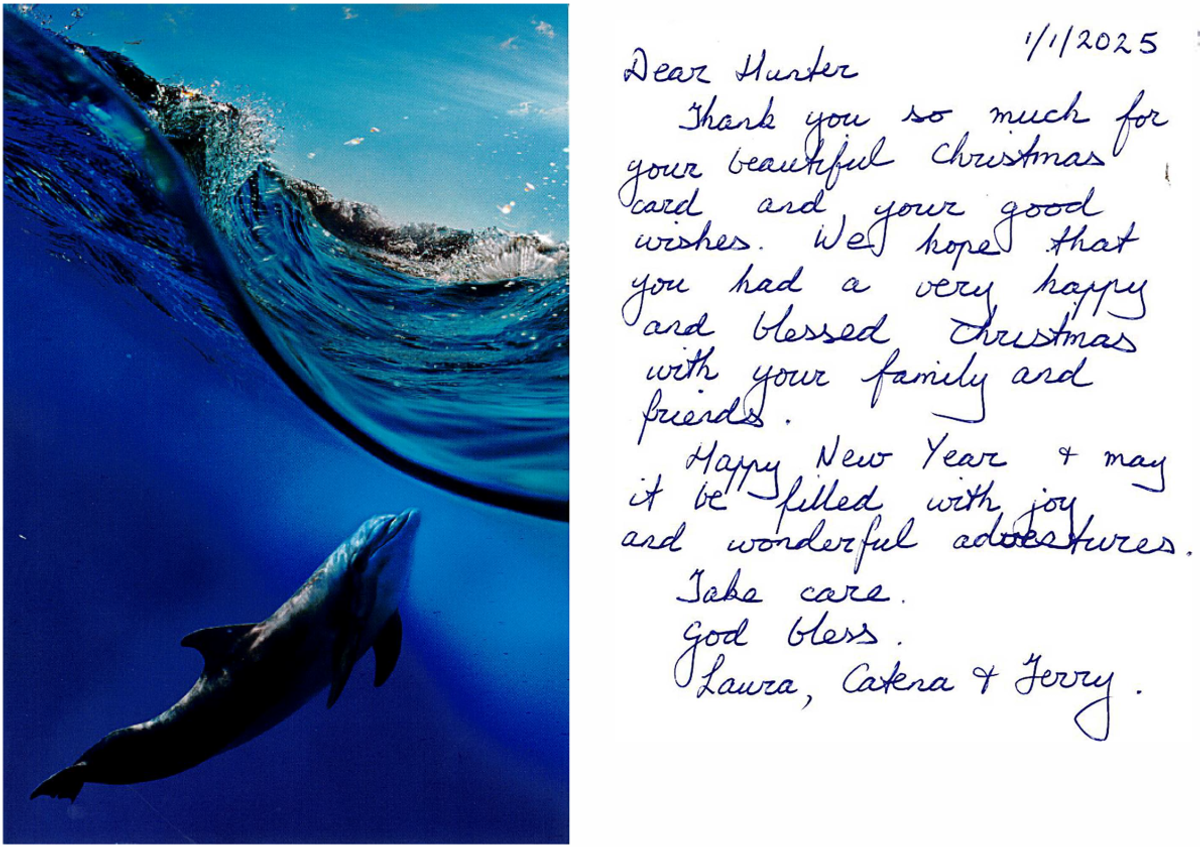 1/1/2025
Dear Hunter
Thank you so much for
your beautiful Christmas
card and your good
wishes. We hope that
you had a very happy
and blessed Christmas
with your family and
friends.
Happy New Year & may
it be filled with joy
and wonderful adventures.
Take care.
God bless.
Laura, Catena & Terry.